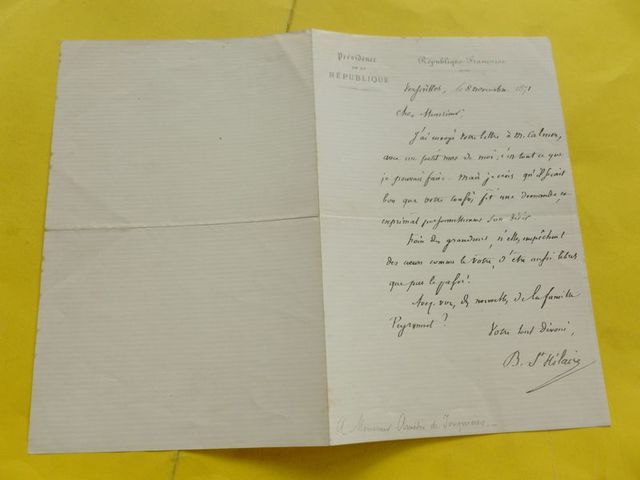 Présidence
DE LA
RÉPUBLIQUE
République Française
Versailles, le 8 novembre 1871
Cher Monsieur,
J'ai envoyé votre lettre à M. Calmon,
avec un petit mot de moi; c'est tout ce que
je pouvais faire. Mais je crois qu'il serait
bon que votre confrère fît une demande,
exprimât personnellement son désir.
des grandeurs, si elles empêchent
des cœurs comme le vôtre, d'être aussi
que par le passé!
Avez vous des nouvelles de la famille
Peyronnet?
Votre tout dévoué,
B. St Hilaire
A Monsieur de